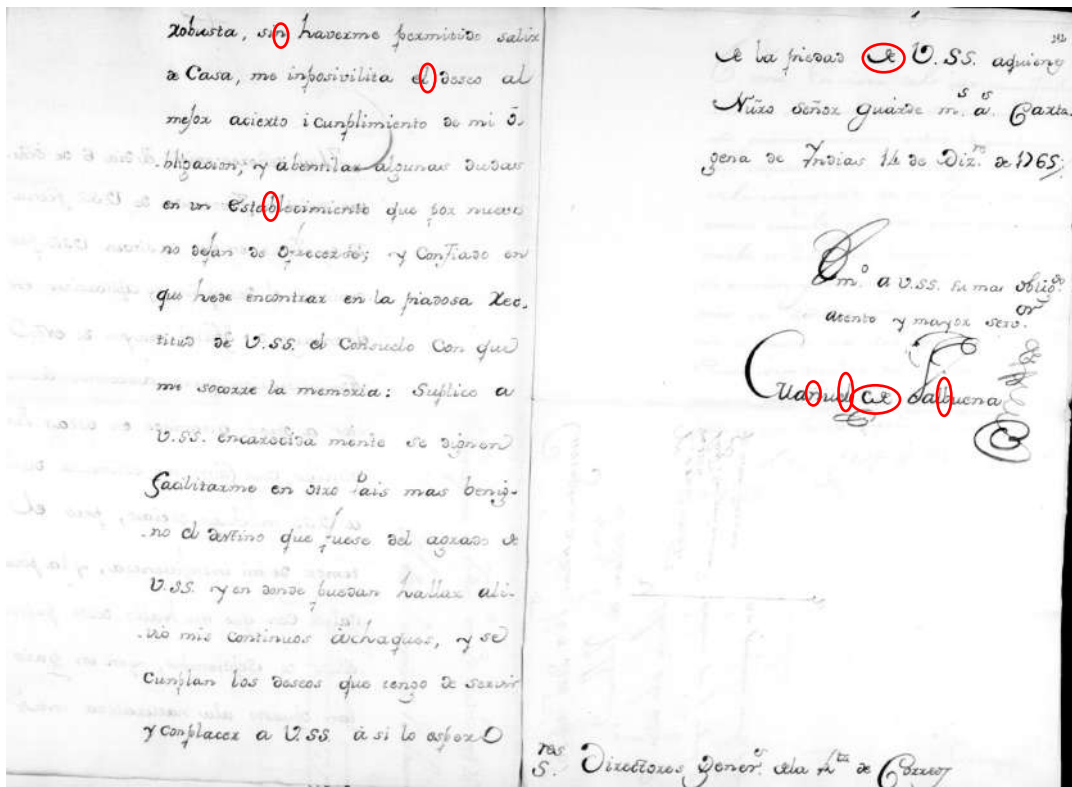 robusta, sin haverme permitido salir
de Casa, me inposivilita el deseo al
mejor acierto i cunplimiento de mi o-
bligacion, y abentilar algunas dudas
en un Establecimiento que por nuevo
no dejan de ofrecerse; y Confiado en
que hede encontrar en la piadosa Rec-
titud de V.SS. el Consuelo Con que
me socorre la memoria: Suplico a
V.SS. encarecida mente se dignen
facilitarme en otro Pais mas benig-
no el destino que fuese del agrado de
V.SS. y en donde puedan hallar ali-
vio mis continuos achaques, y se
cunplan los deseos que tengo de servir
y conplacer a V.SS. à si lo espero
de la piedad de V.SS. aquienes
Nuro Señor guarde m.s a.s Carta-
gena de Yndias 14 de Diz.re de 1765,
m.o a V.SS. su mas oblig.do
atento y mayor serv.or
Manuel de Balbuena
S.res Directores Gener.s dela R.ta de Correos